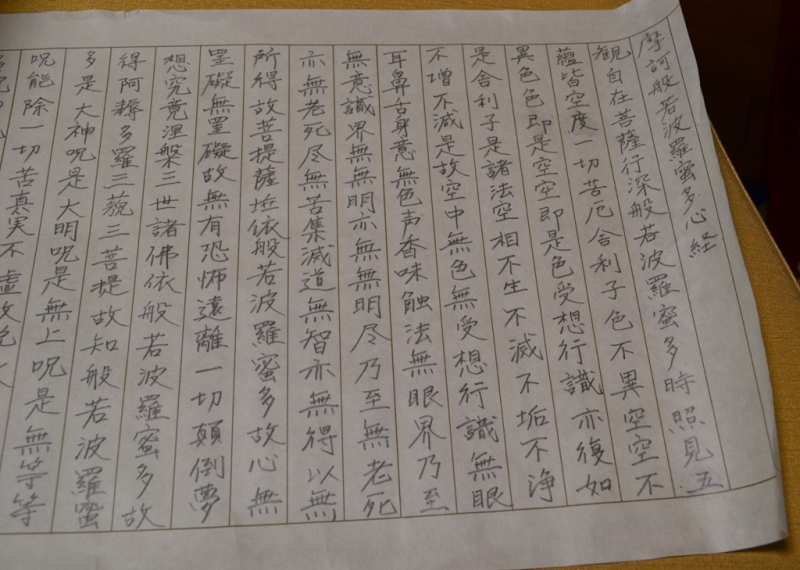 摩訶般若波羅蜜多心経
観自在菩薩行深般若波羅蜜多時照見五
蘊皆空度一切苦厄舎利子色不異空空不
異色色即是空空即是色受想行識亦復如
是舎利子是諸法空相不生不滅不垢不浄
不増不減是故空中無色無受想行識無眼
耳鼻舌身意無色声香味触法無眼界乃至
無意識界無無明亦無無明尽乃至無老死
亦無老死尽無苦集滅道無智亦無得以無
所得故菩提薩埵依般若波羅蜜多故心無
罣礙無罣礙故無有恐怖遠離一切顛倒夢
想究竟涅槃三世諸佛依般若波羅蜜多故
得阿耨多羅三藐三菩提故知般若波羅蜜
多是大神呪是大明呪是無上呪是無等等
呪能除一切苦真実不虚故